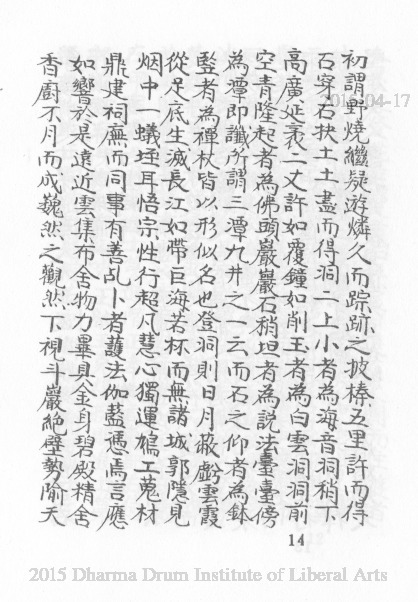 初謂野燒繼疑遊燐久而踪跡之披榛五里許而得
石穿石抉土土盡而得洞二上小者為海音洞稍下
高廣延袤二丈許如覆鐘如削玉者為白雲洞洞前
空青隆起者為佛頭巖巖石稍坦者為說法臺臺傍
為潭即讖所謂三潭九井之一云而石之仰者為鉢
豎者為禪杖皆以形似名也登洞則日月蔽虧雲霞
從足底生滅長江如帶巨海若杯而無諸城郭隱見
烟中一蟻垤耳悟宗性行超凡慧心獨運鳩工蒐材
鼎建祠廡而同事有善乩卜者護法伽藍憑焉言應
如響於是遠近雲集布舍物力畢具金身碧殿精舍
香廚不月而成巍然之觀然下視斗巖絕壁勢隃天
14
2015-04-17
2015 Dharma Drum Institute of Liberal Arts